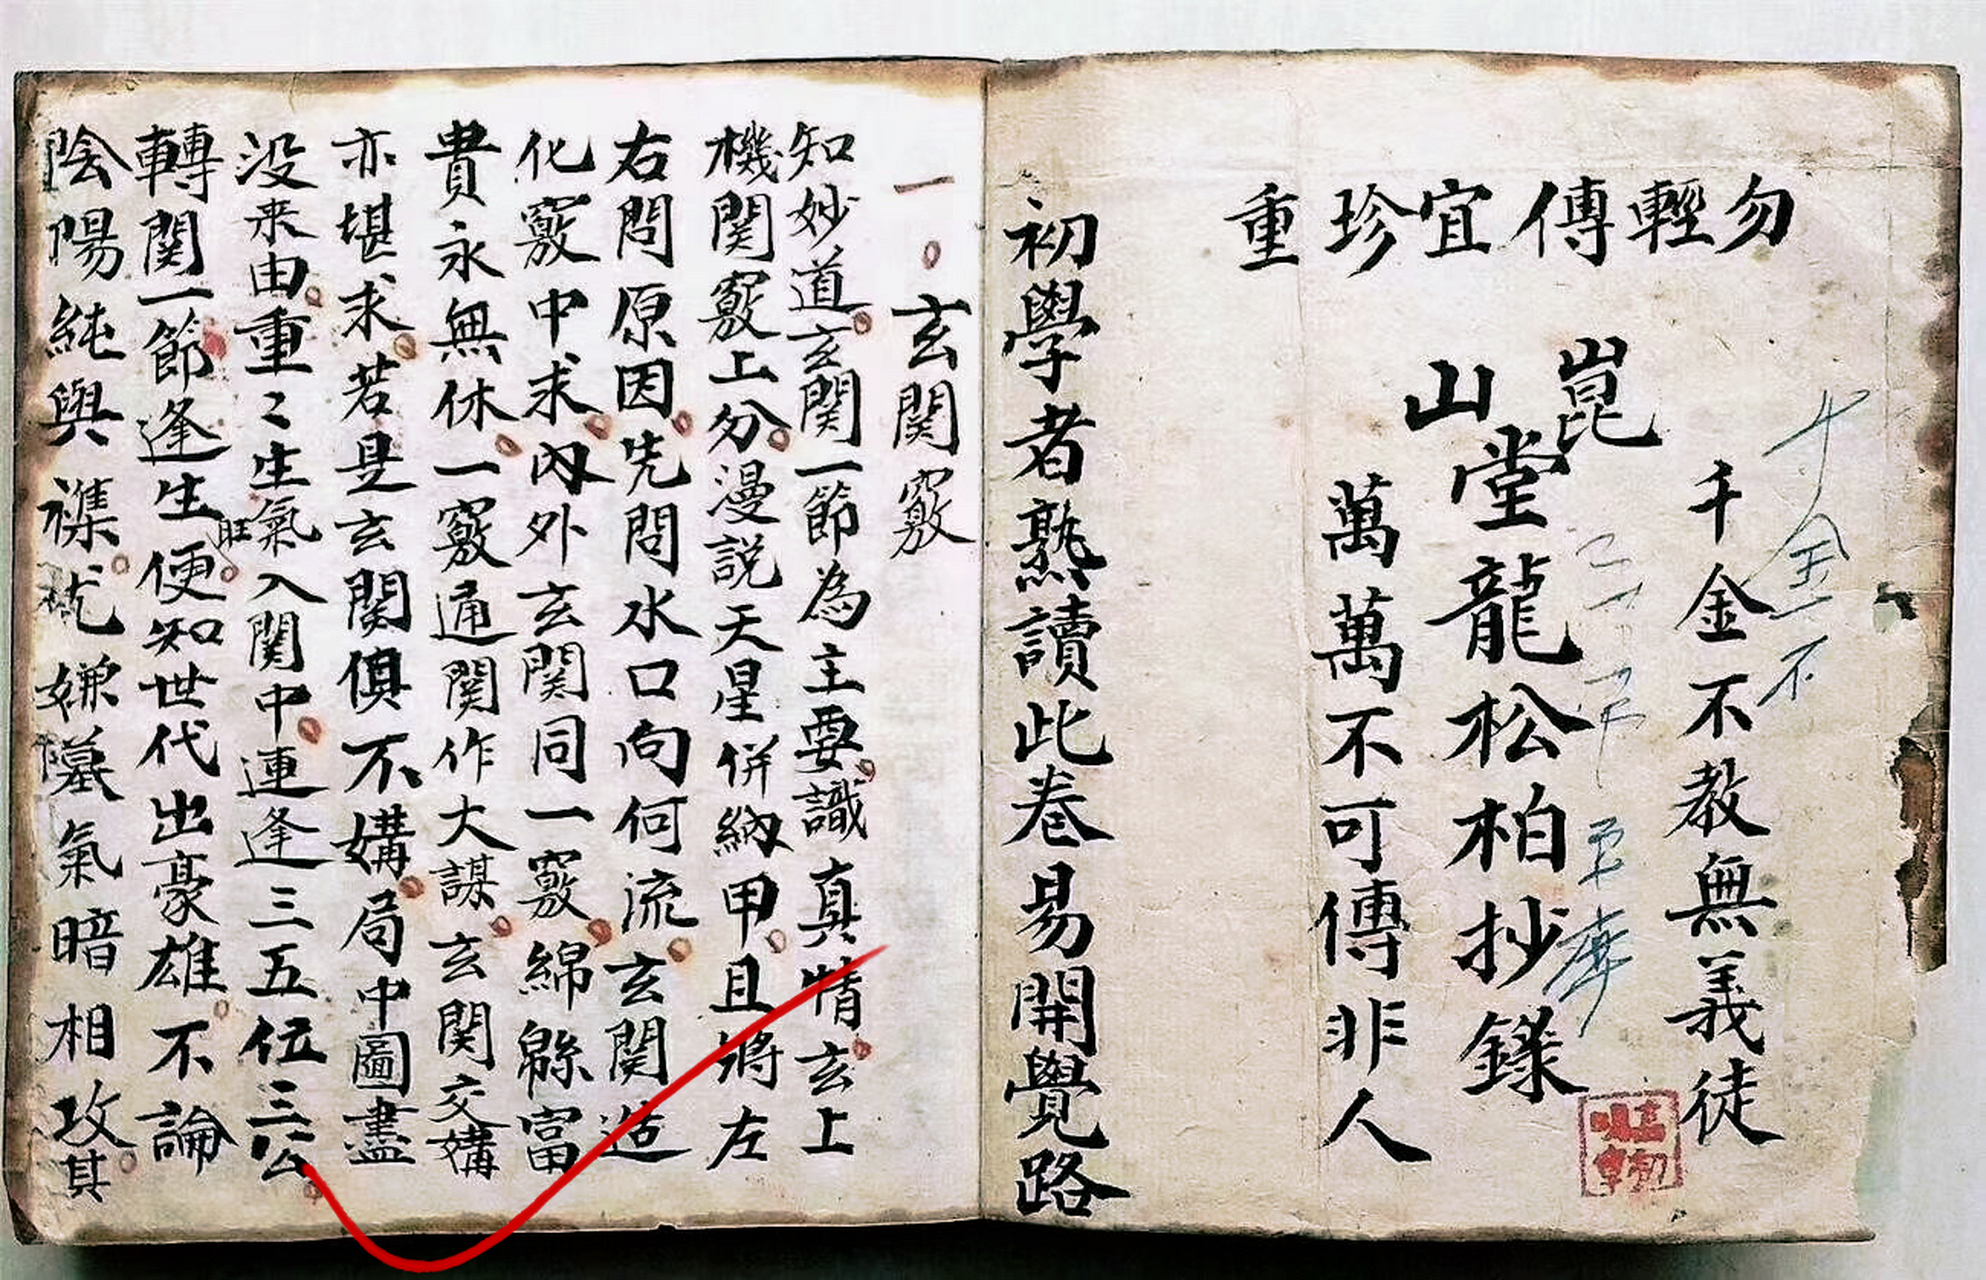 勿輕傳宜珍重
千金不
千金不教無義徒
崑山堂龍松柏抄錄
萬萬不可傳非人
初學者熟讀此卷易開覺路
一。玄関竅
知妙道。玄関一節為主要。識真情。玄上
機関竅上分。漫説天星併納甲。且將左
右問原因。先問水口向何流。玄関造
化竅中求。內外玄関同一竅。綿緜富
貴永無休。一竅通関作大謀。玄関交媾
亦堪求。若是玄関俱不媾。局中圖盡
没来由。重〻生氣入関中。連逢三五位三公。
轉関一節逢生旺。便知世代出豪雄。不論
陰陽純與襍。尤嫌墓氣暗相攻。其